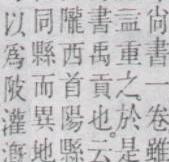 尙書一卷雖
言重之於是
書禹貢也。云
隴西首陽縣
同縣而異地
以爲陂灌漑